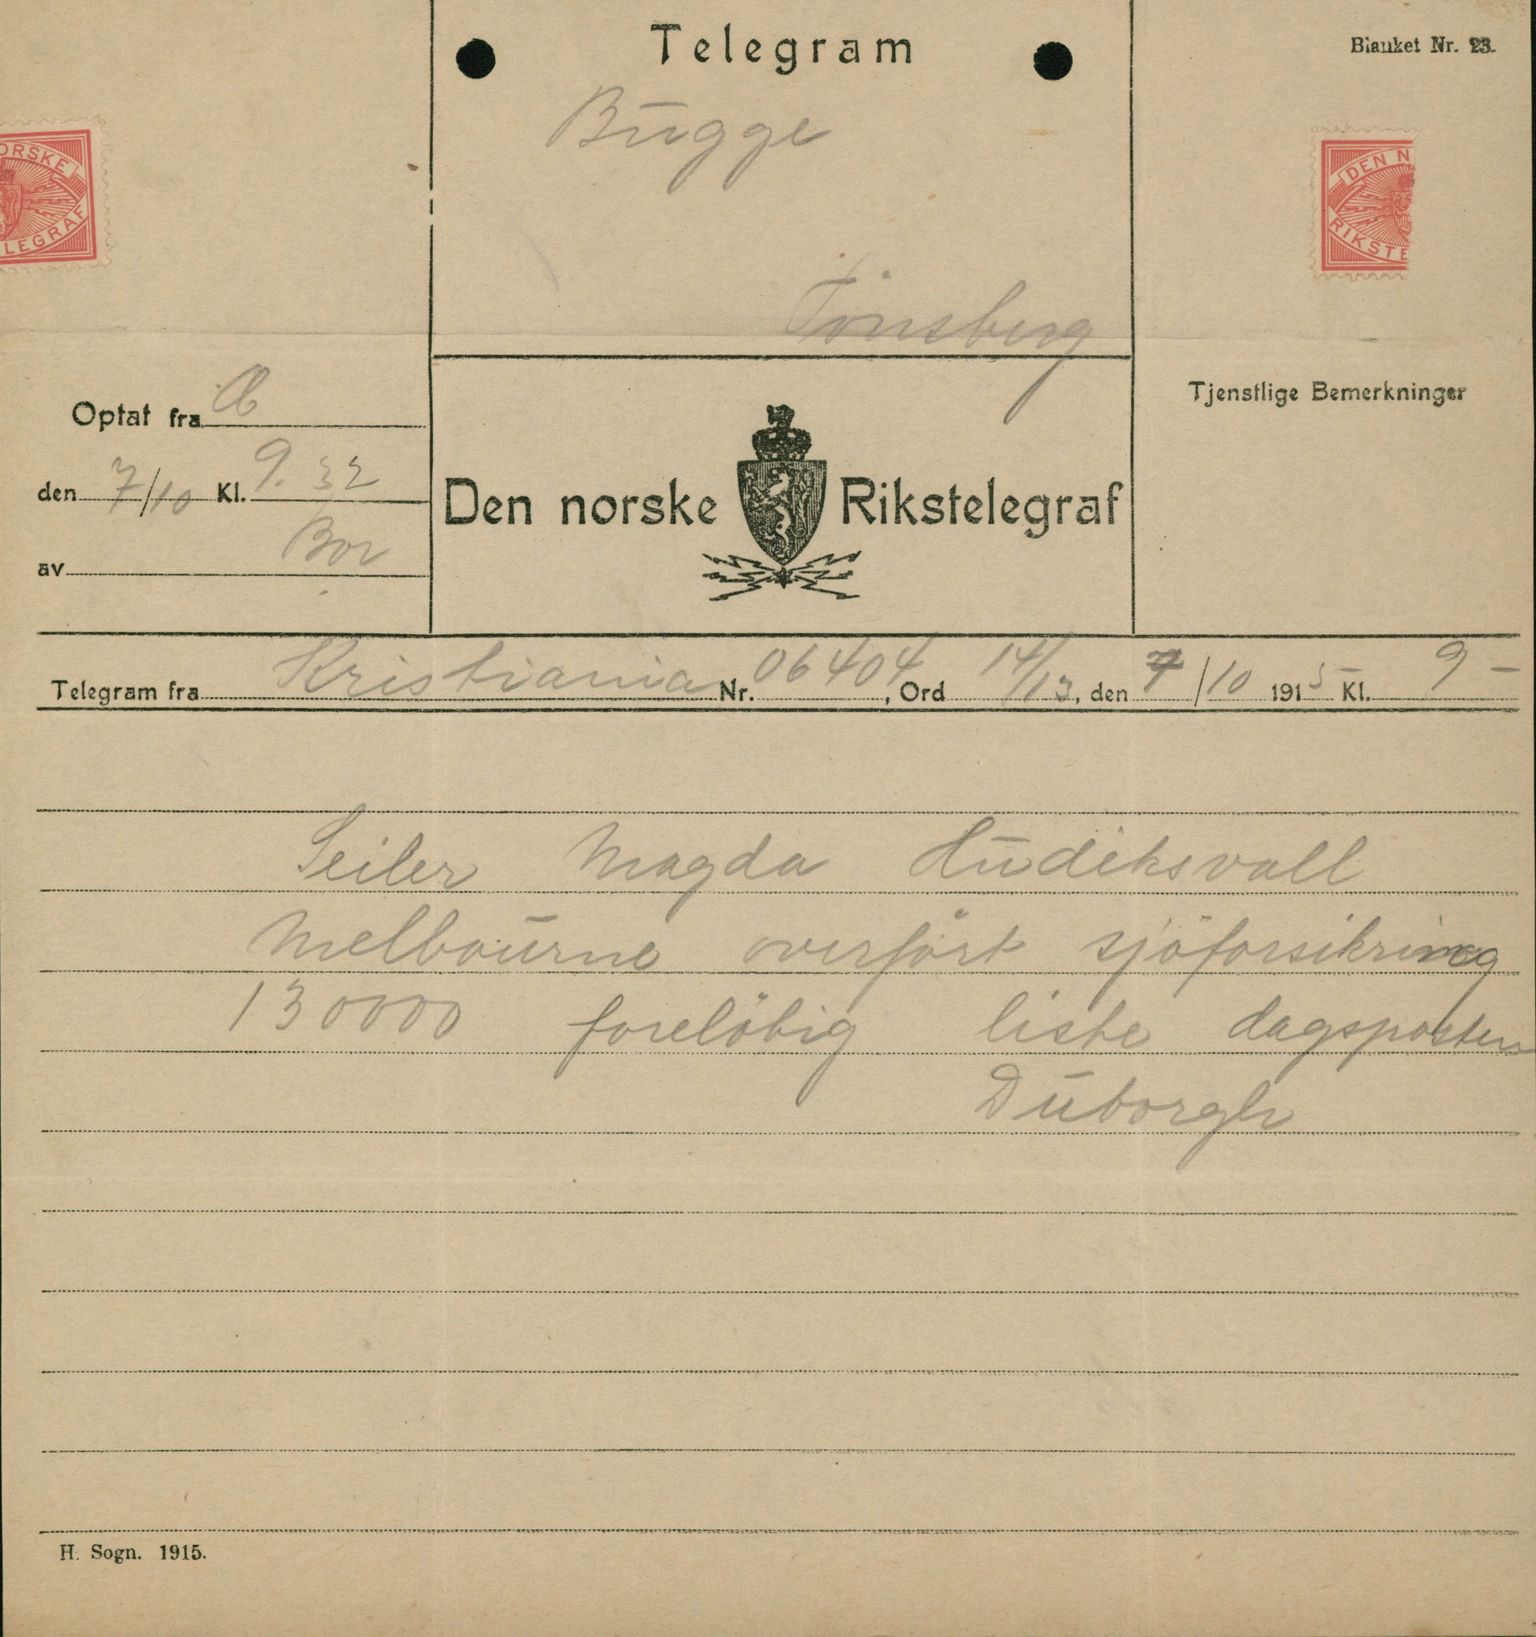 Telegram
Blanket Nr. 23.
Bugge
Tönsberg
ORSKE
LEGRAF
DEN N
RIKSTE
Optat fra
den 7/10 Kl. 9.32
av Bor
Den norske Rikstelegraf
Tjenstlige Bemerkninger
Telegram fra Kristiania Nr. 06404, Ord 14/13, den 7/10 1915 Kl. 9 –
Seiler Magda Hudiksvall
Melbourne overfört sjöforsikring
130000 forelöbig liste dagsposten
Duborgh
H. Sogn. 1915.